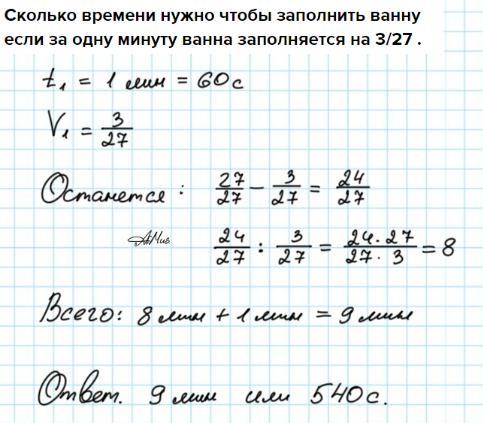 Сколько времени нужно чтобы заполнить ванну
если за одну минуту ванна заполняется на 3/27 .
t₁ = 1 мин = 60с
V₁ = 3/27
Останется : 27/27 − 3/27 = 24/27
24/27 : 3/27 = 24·27/27·3 = 8
Всего: 8 мин + 1 мин = 9 мин
Ответ. 9 мин или 540с.